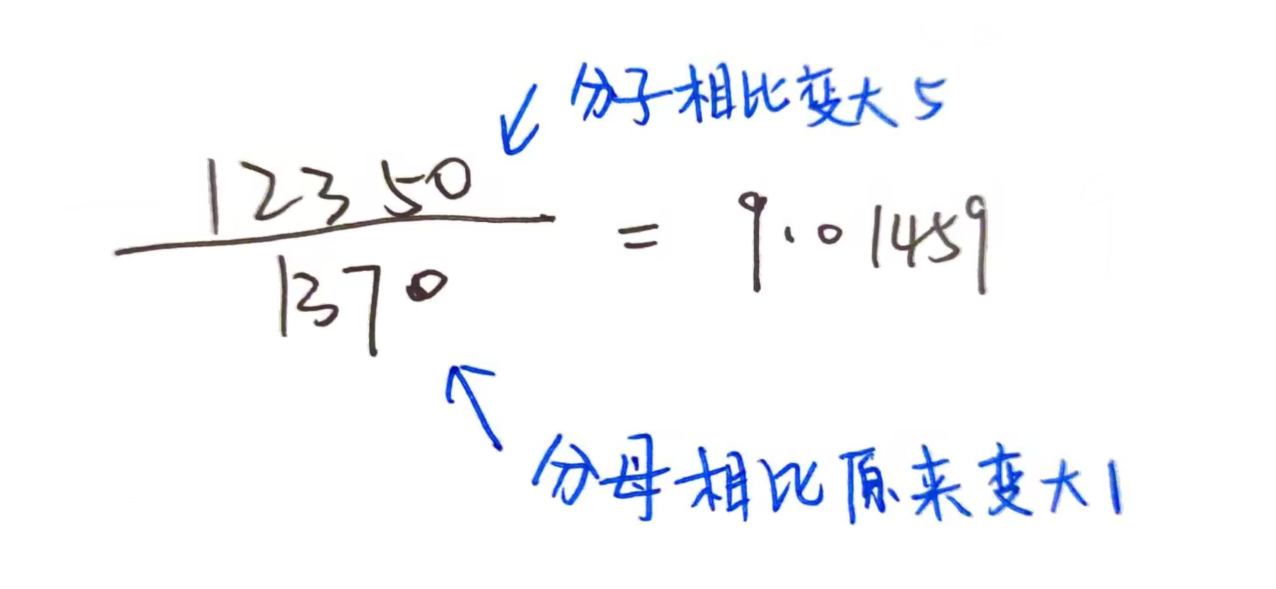 分子相比变大5
12350
1370
= 9.01459
分母相比原来变大1